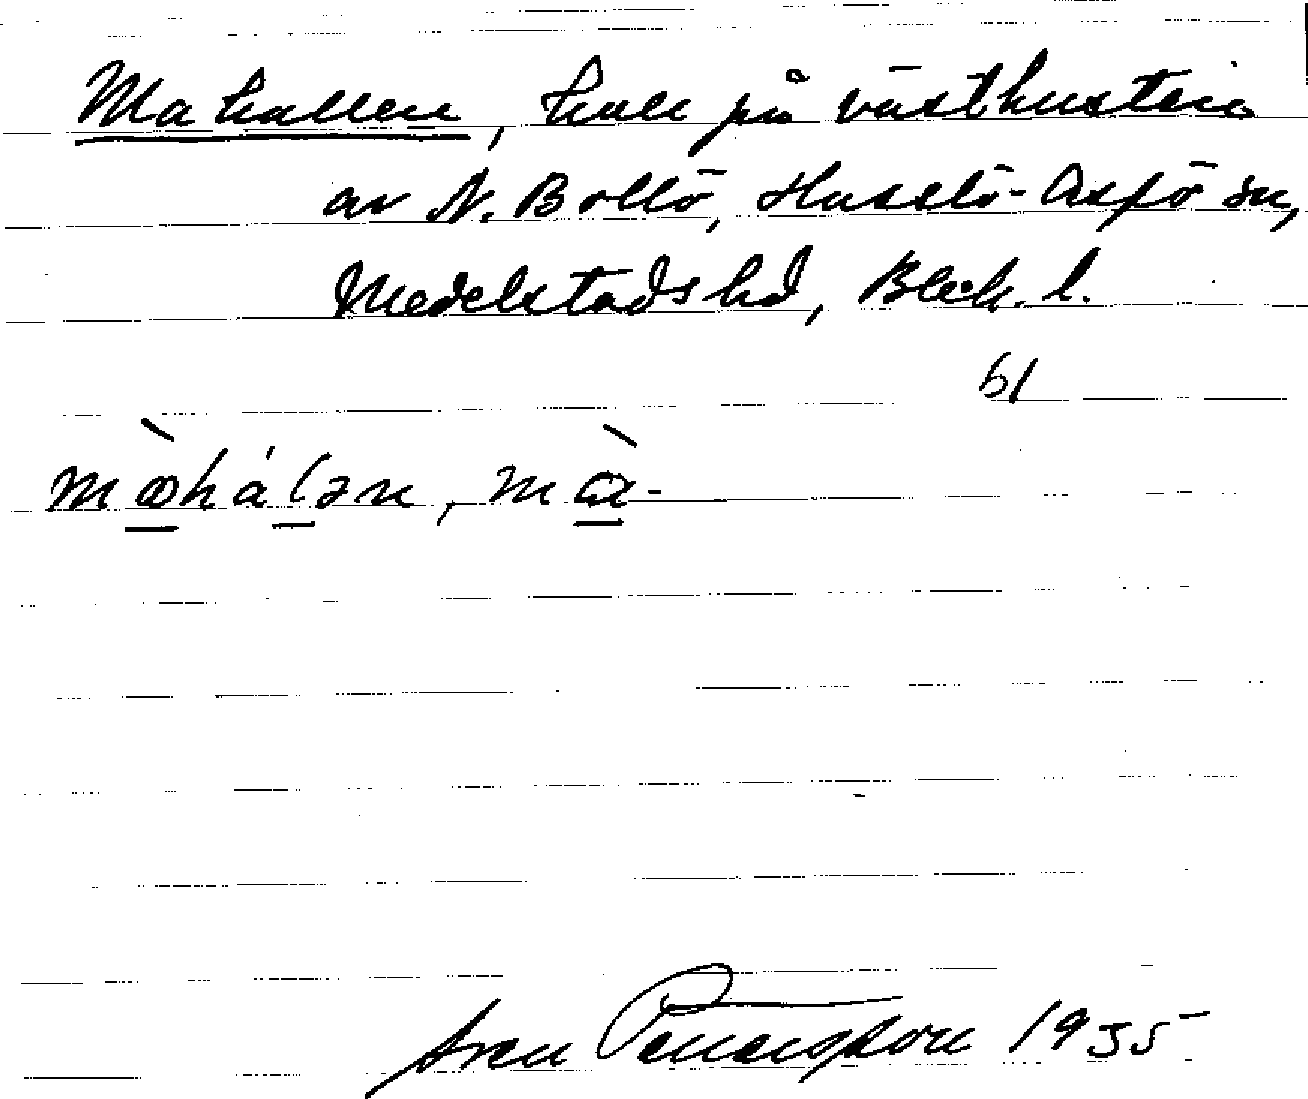 Mahallen, hall på västkusten
av N. Bollö, Hasslö-Aspö sn,
Medelstads hd, Blek. l.
61
màhálən, mà-
Sven 1935